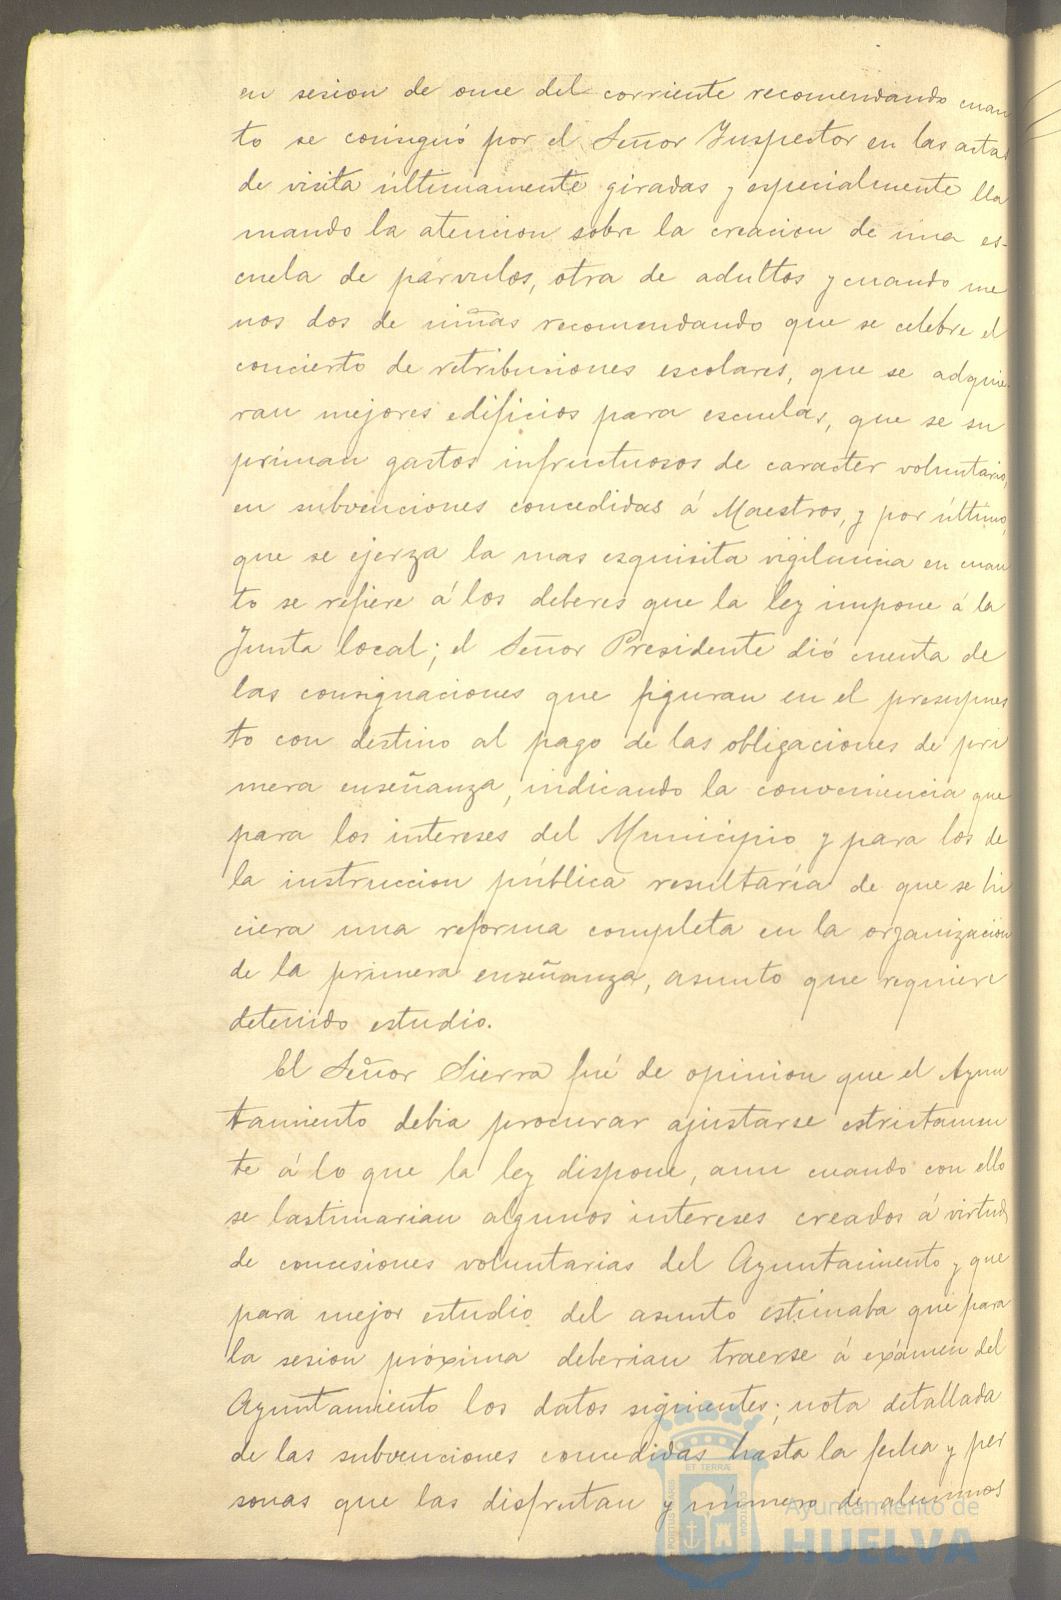 en sesion de once del corriente recomendando cuan
to se consignó por el Señor Inspector en las actas
de visita últimamente giradas y especialmente lla
mando la atencion sobre la creacion de una es-
cuela de párvulos, otra de adultos y cuando me
nos dos de niñas recomendando que se celebre el
concierto de retribuciones escolares, que se adquie-
ran mejores edificios para escuelas, que se su
priman gastos infructuosos de caracter voluntario,
en subvenciones concedidas á Maestros, y por último,
que se ejerza la mas esquisita vigilancia en cuan
to se refiere á los deberes que la ley impone á la
Junta local; el Señor Presidente dió cuenta de
las consignaciones que figuran en el presupues
to con destino al pago de las obligaciones de pri
mera enseñanza, indicando la conveniencia que
para los intereses del Municipio y para los de
la instruccion pública resultaría de que se hi
ciera una reforma completa en la organizacion
de la primera enseñanza, asunto que requiere
detenido estudio.
El Señor Sierra fué de opinion que el Ayun
tamiento debia procurar ajustarse estrictamen
te á lo que la ley dispone, aun cuando con ello
se lastimarian algunos intereses creados á virtud
de concesiones voluntarias del Ayuntamiento y que
para mejor estudio del asunto estimaba que para
la sesion próxima deberian traerse á exámen del
Ayuntamiento los datos siguientes; nota detallada
de las subvenciones concedidas hasta la fecha y per
sonas que las disfrutan y número de alumnos
ET TERRÆ
PORTUS MARIS
CUSTODIA
Ayuntamiento de
HUELVA